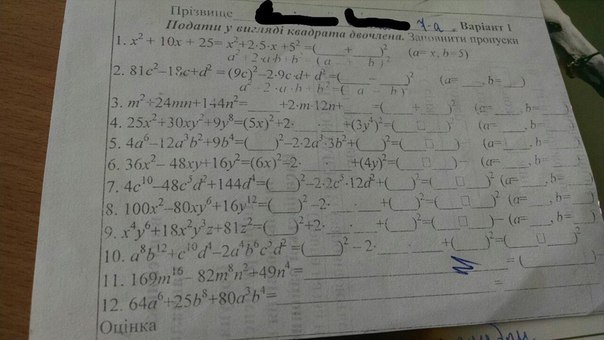 Прізвище 7-а Варіант 1
Подати у вигляді квадрата двочлена. Заповнити пропуски
1. x² + 10x + 25= x²+2·5·x +5² =(___+___)² (a= x, b=5)
a² + 2 ·a·b + b² (a + b)²
2. 81c²–18c+d² = (9c)²–2·9c·d+ d² =(___–___)² (a=___, b=___)
a² – 2 · a · b + b² = ( a – b)²
3. m²+24mn+144n²=___+2·m·12n+___=(___+___)² (a=___, b=___)
4. 25x²+30xy²+9y⁸=(5x)²+2·___·___+(3y⁴)²=(___□___)² (a=___, b=
5. 4a⁶–12a³b²+9b⁴=(___)²–2·2a³·3b²+(___)²=(___□___)² (a=___, b=
6. 36x²– 48xy+16y²=(6x)²–2·___·___+(4y)²=(___□___)– (a=___, b=
7. 4c¹⁰–48c⁵d²+144d⁴=(___)²–2·2c⁵·12d²+(___)²=(___□___)² (a=___, b=
8. 100x²–80xy⁶+16y¹²=(___)²–2·___·___+(___)²=(___□___)² (a=___, b=
9. x⁴y⁶+18x²y³z+81z²=(___)²+2·___·___+(___)²=(___□___)– (a=___, b=
10. a⁸b¹²+c¹⁰d⁴–2a⁴b⁶c⁵d²=(___)² – 2·___·___+(___)²=(___□___)²
11. 169m¹⁶– 82m⁸n²+49n⁴=___= (___)
12. 64a⁶+25b⁸+80a³b⁴=___=
Оцінка